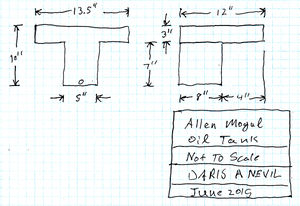 13.5"
12"
10"
3"
7"
5"
8"
4"
Allen Mogul
Oil Tank
Not To Scale
DARIS A NEVIL
June 2015